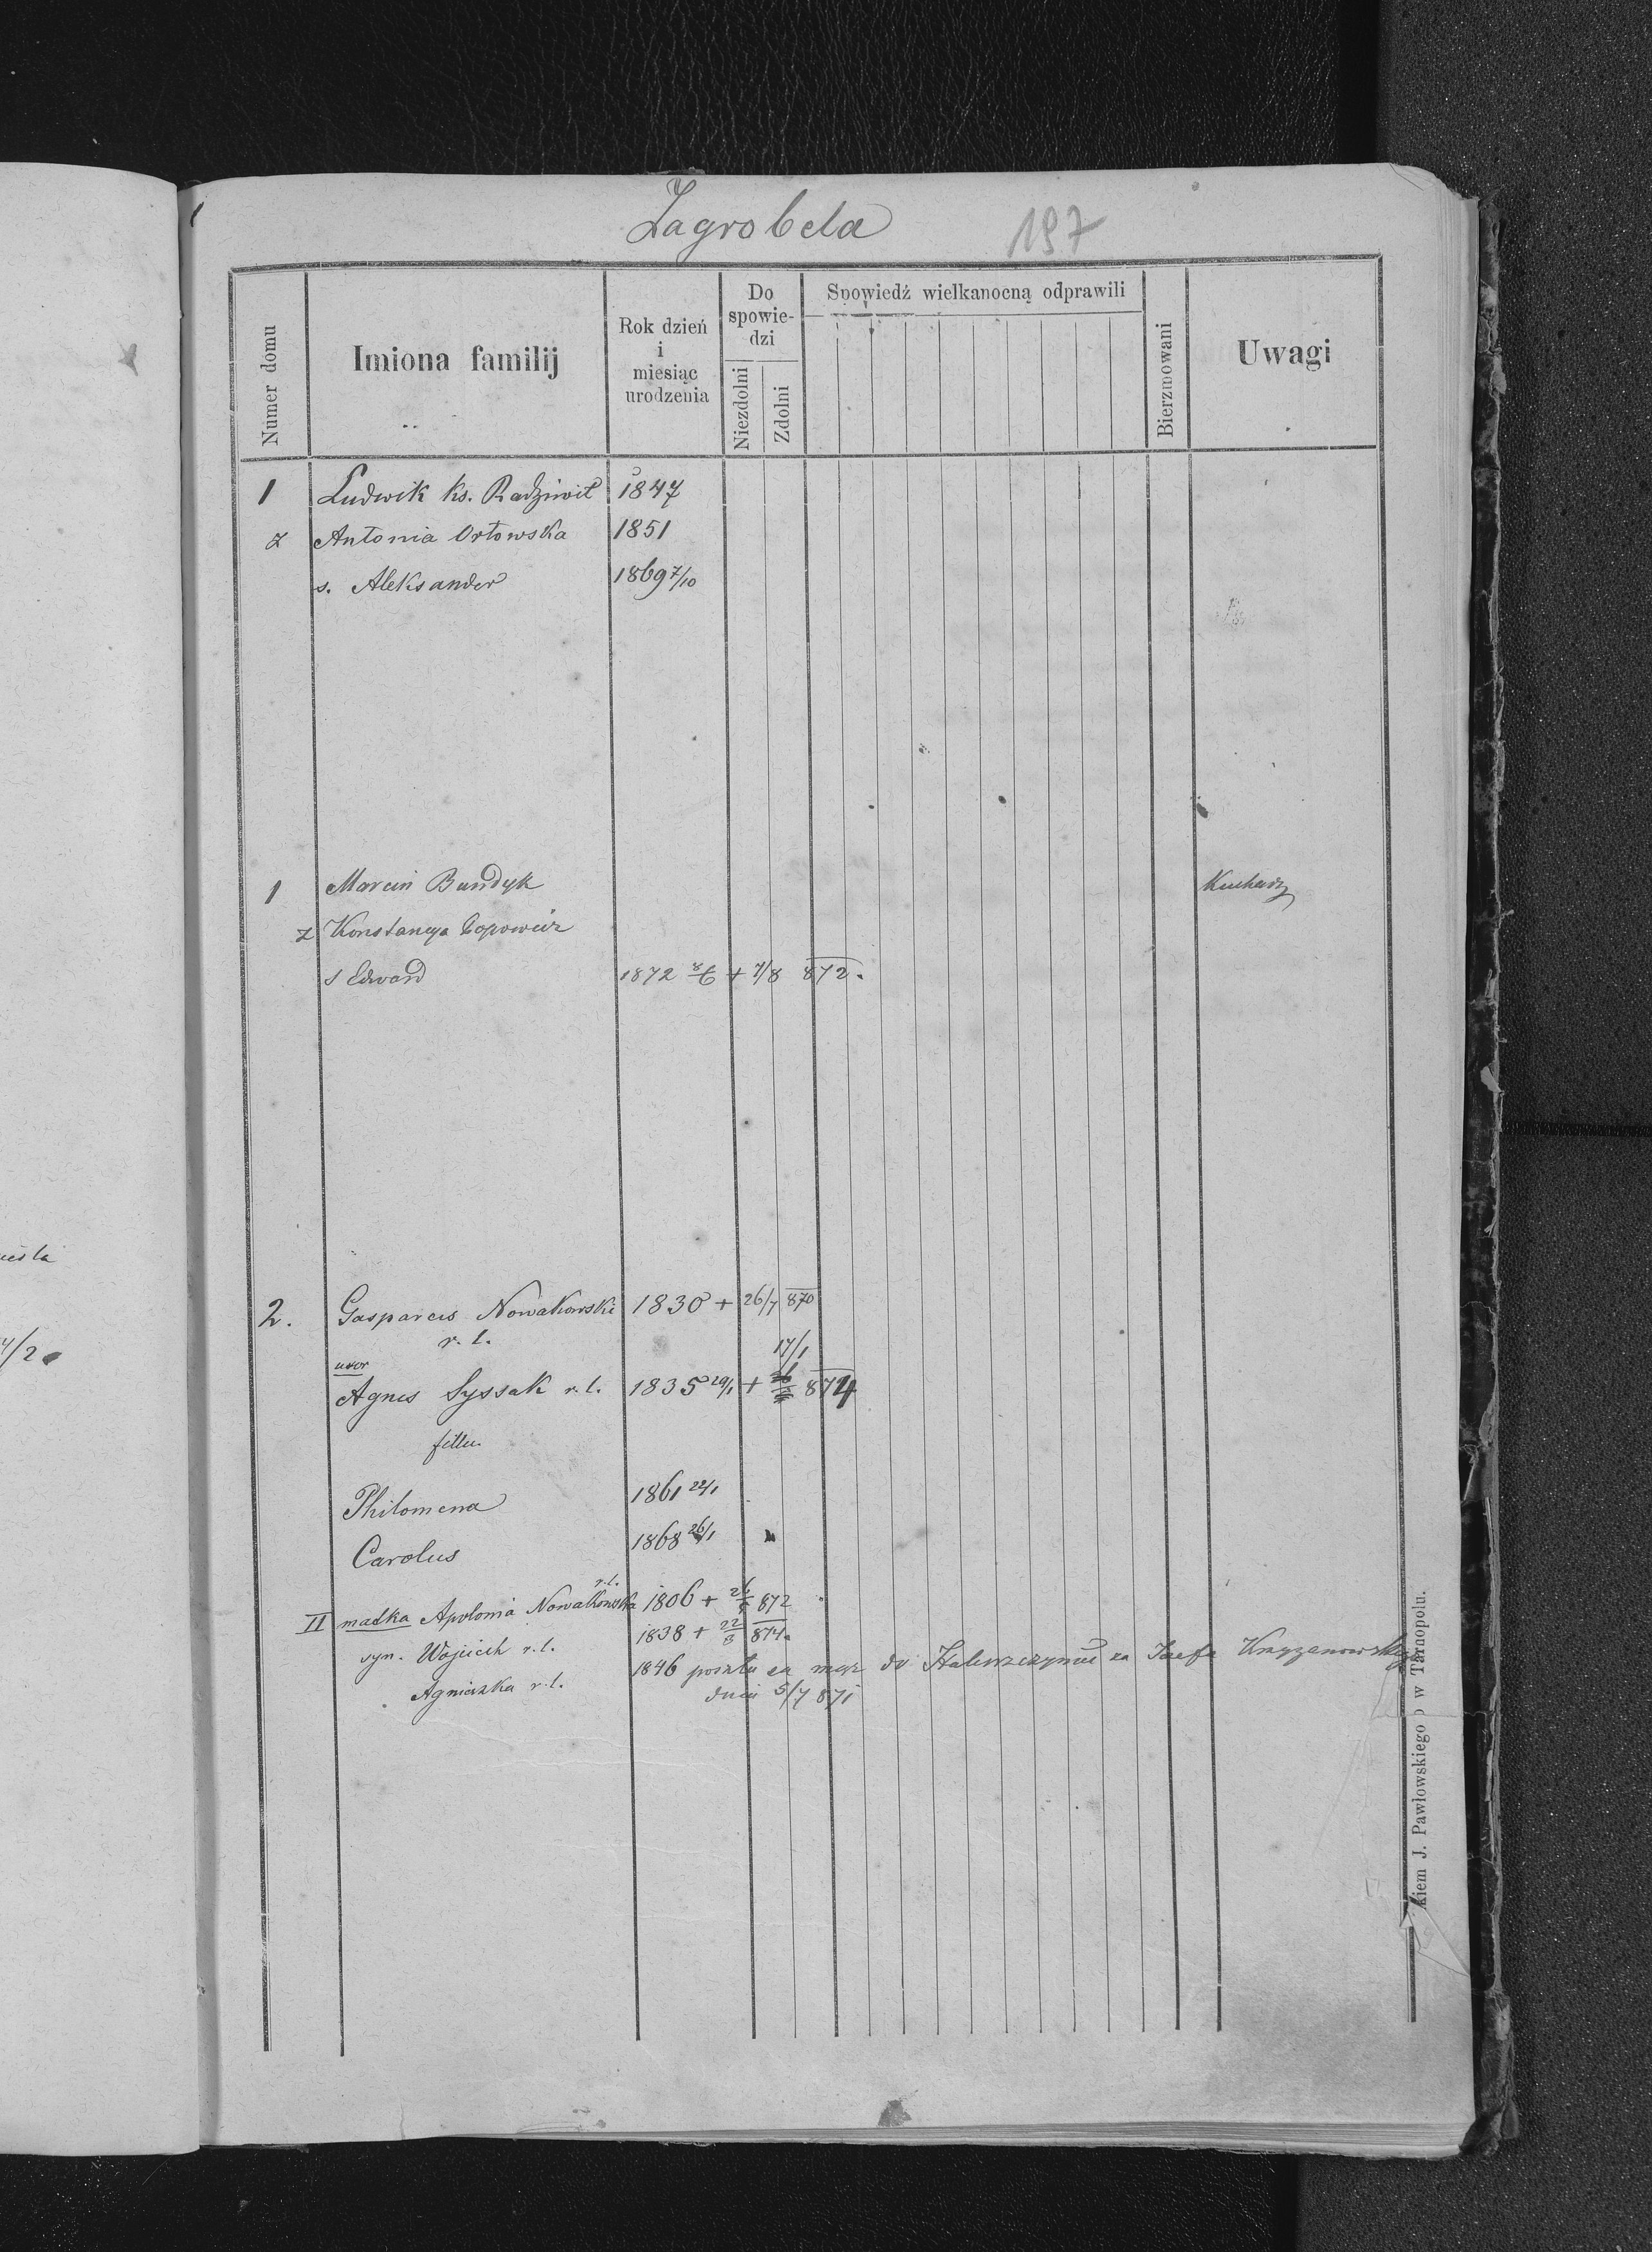 Zagrobela 197
Numer domu
Imiona familij
Rok dzień
i
miesiąc
urodzenia
Do
spowie-
dzi
Niezdolni
Zdolni
Spowiedź wielkanocną odprawili
Bierzmowani
Uwagi
1 Ludwik ks. Radziwił 1847
ż Antonia Orłowska 1851
s. Aleksander 1869 7/10
1 Marcin Bundyk Kucharz
ż Konstancya Popowicz
s Edward 1872 8/6 + 7/8 872.
2. Gasparus Nowakowski 1830 + 26/7 870
r. l. 17/1
uxor
Agnes Syssak r. l. 1835 29/1 + 874
Philomena 1861
Carolus 1868 26/1
r. l.
II matka Apolonia Nowakowska 1806 + 872
syn. Wojciech r. l. 1838 + 22/8 874.
Agnieszka r. l. 1846 poszła za mąż do za Józefa Krzyżanowskiego
dnia 5/7 871
kiem J. Pawłowskiego w Tarnopolu.